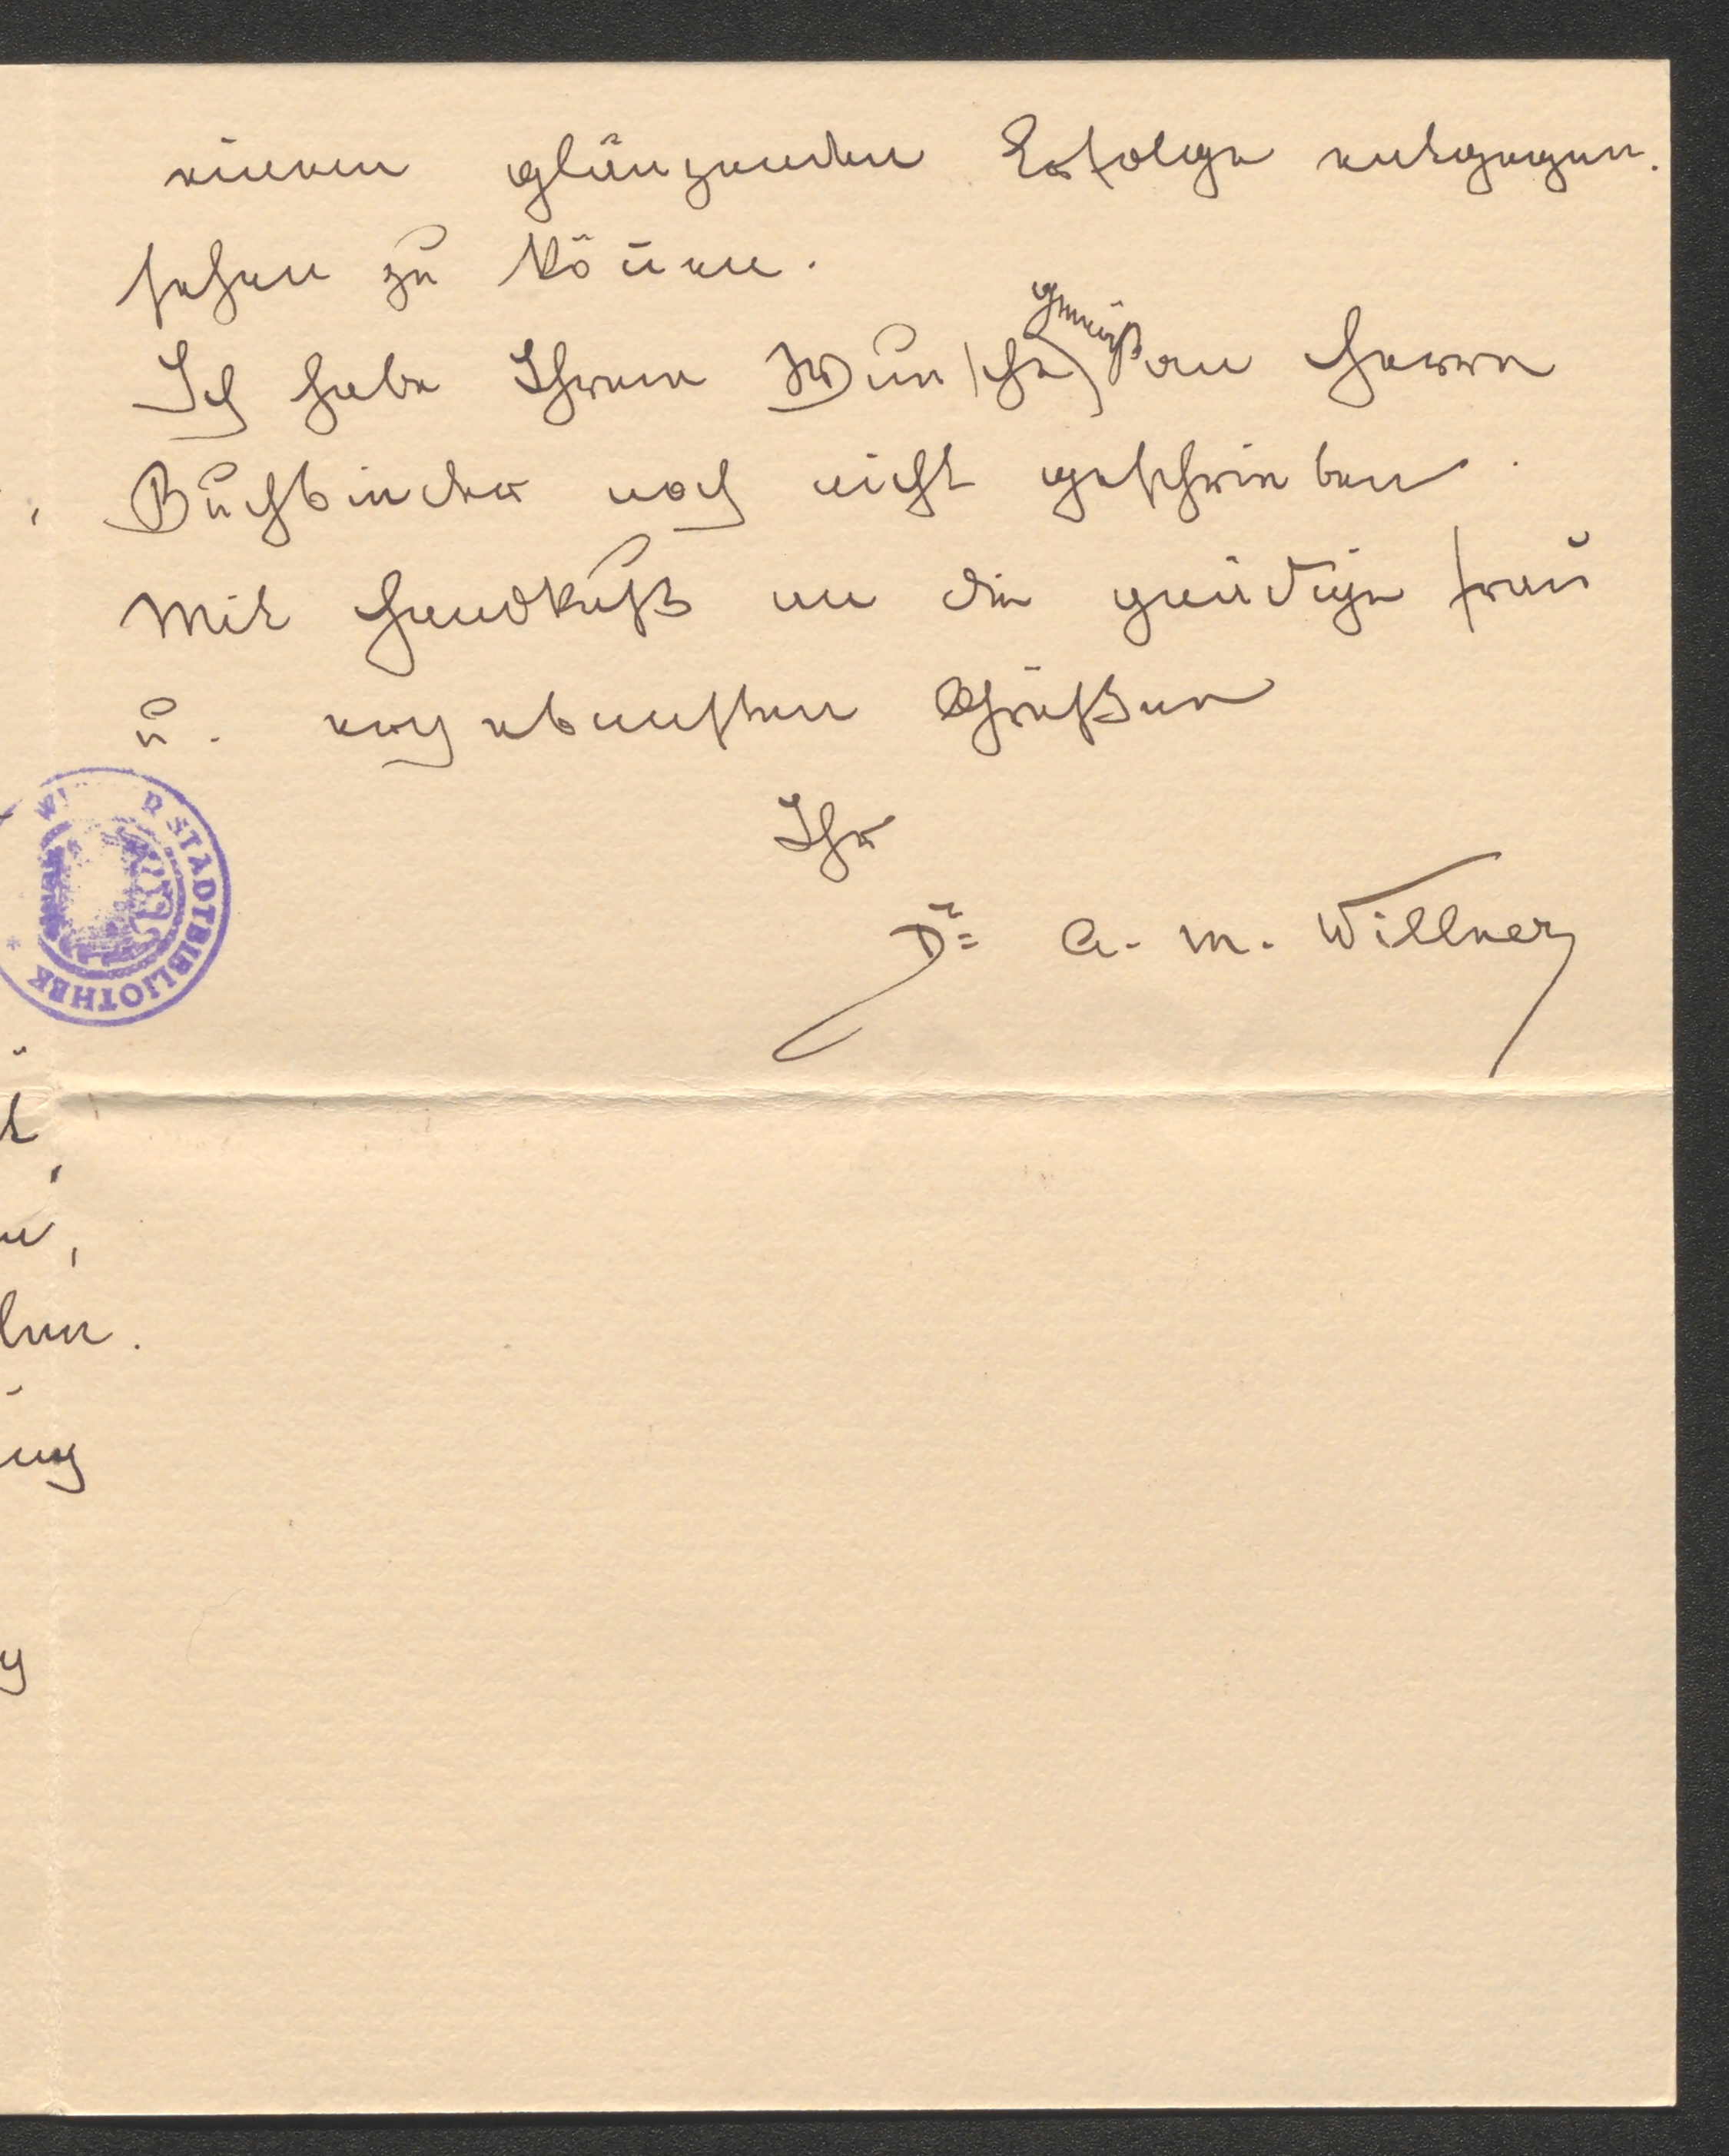 einem glänzenden Erfolge entgegen.
sehen zu können.
gemäß
Ich habe Ihrem Wunsche an Herrn
Buchbinder noch nicht geschrieben.
Mit Handkuß an die gnädige Frau
u. ergebensten Grüßen
Ihr
Dr. A. M. Willner
STADTBIBLIOTHEK